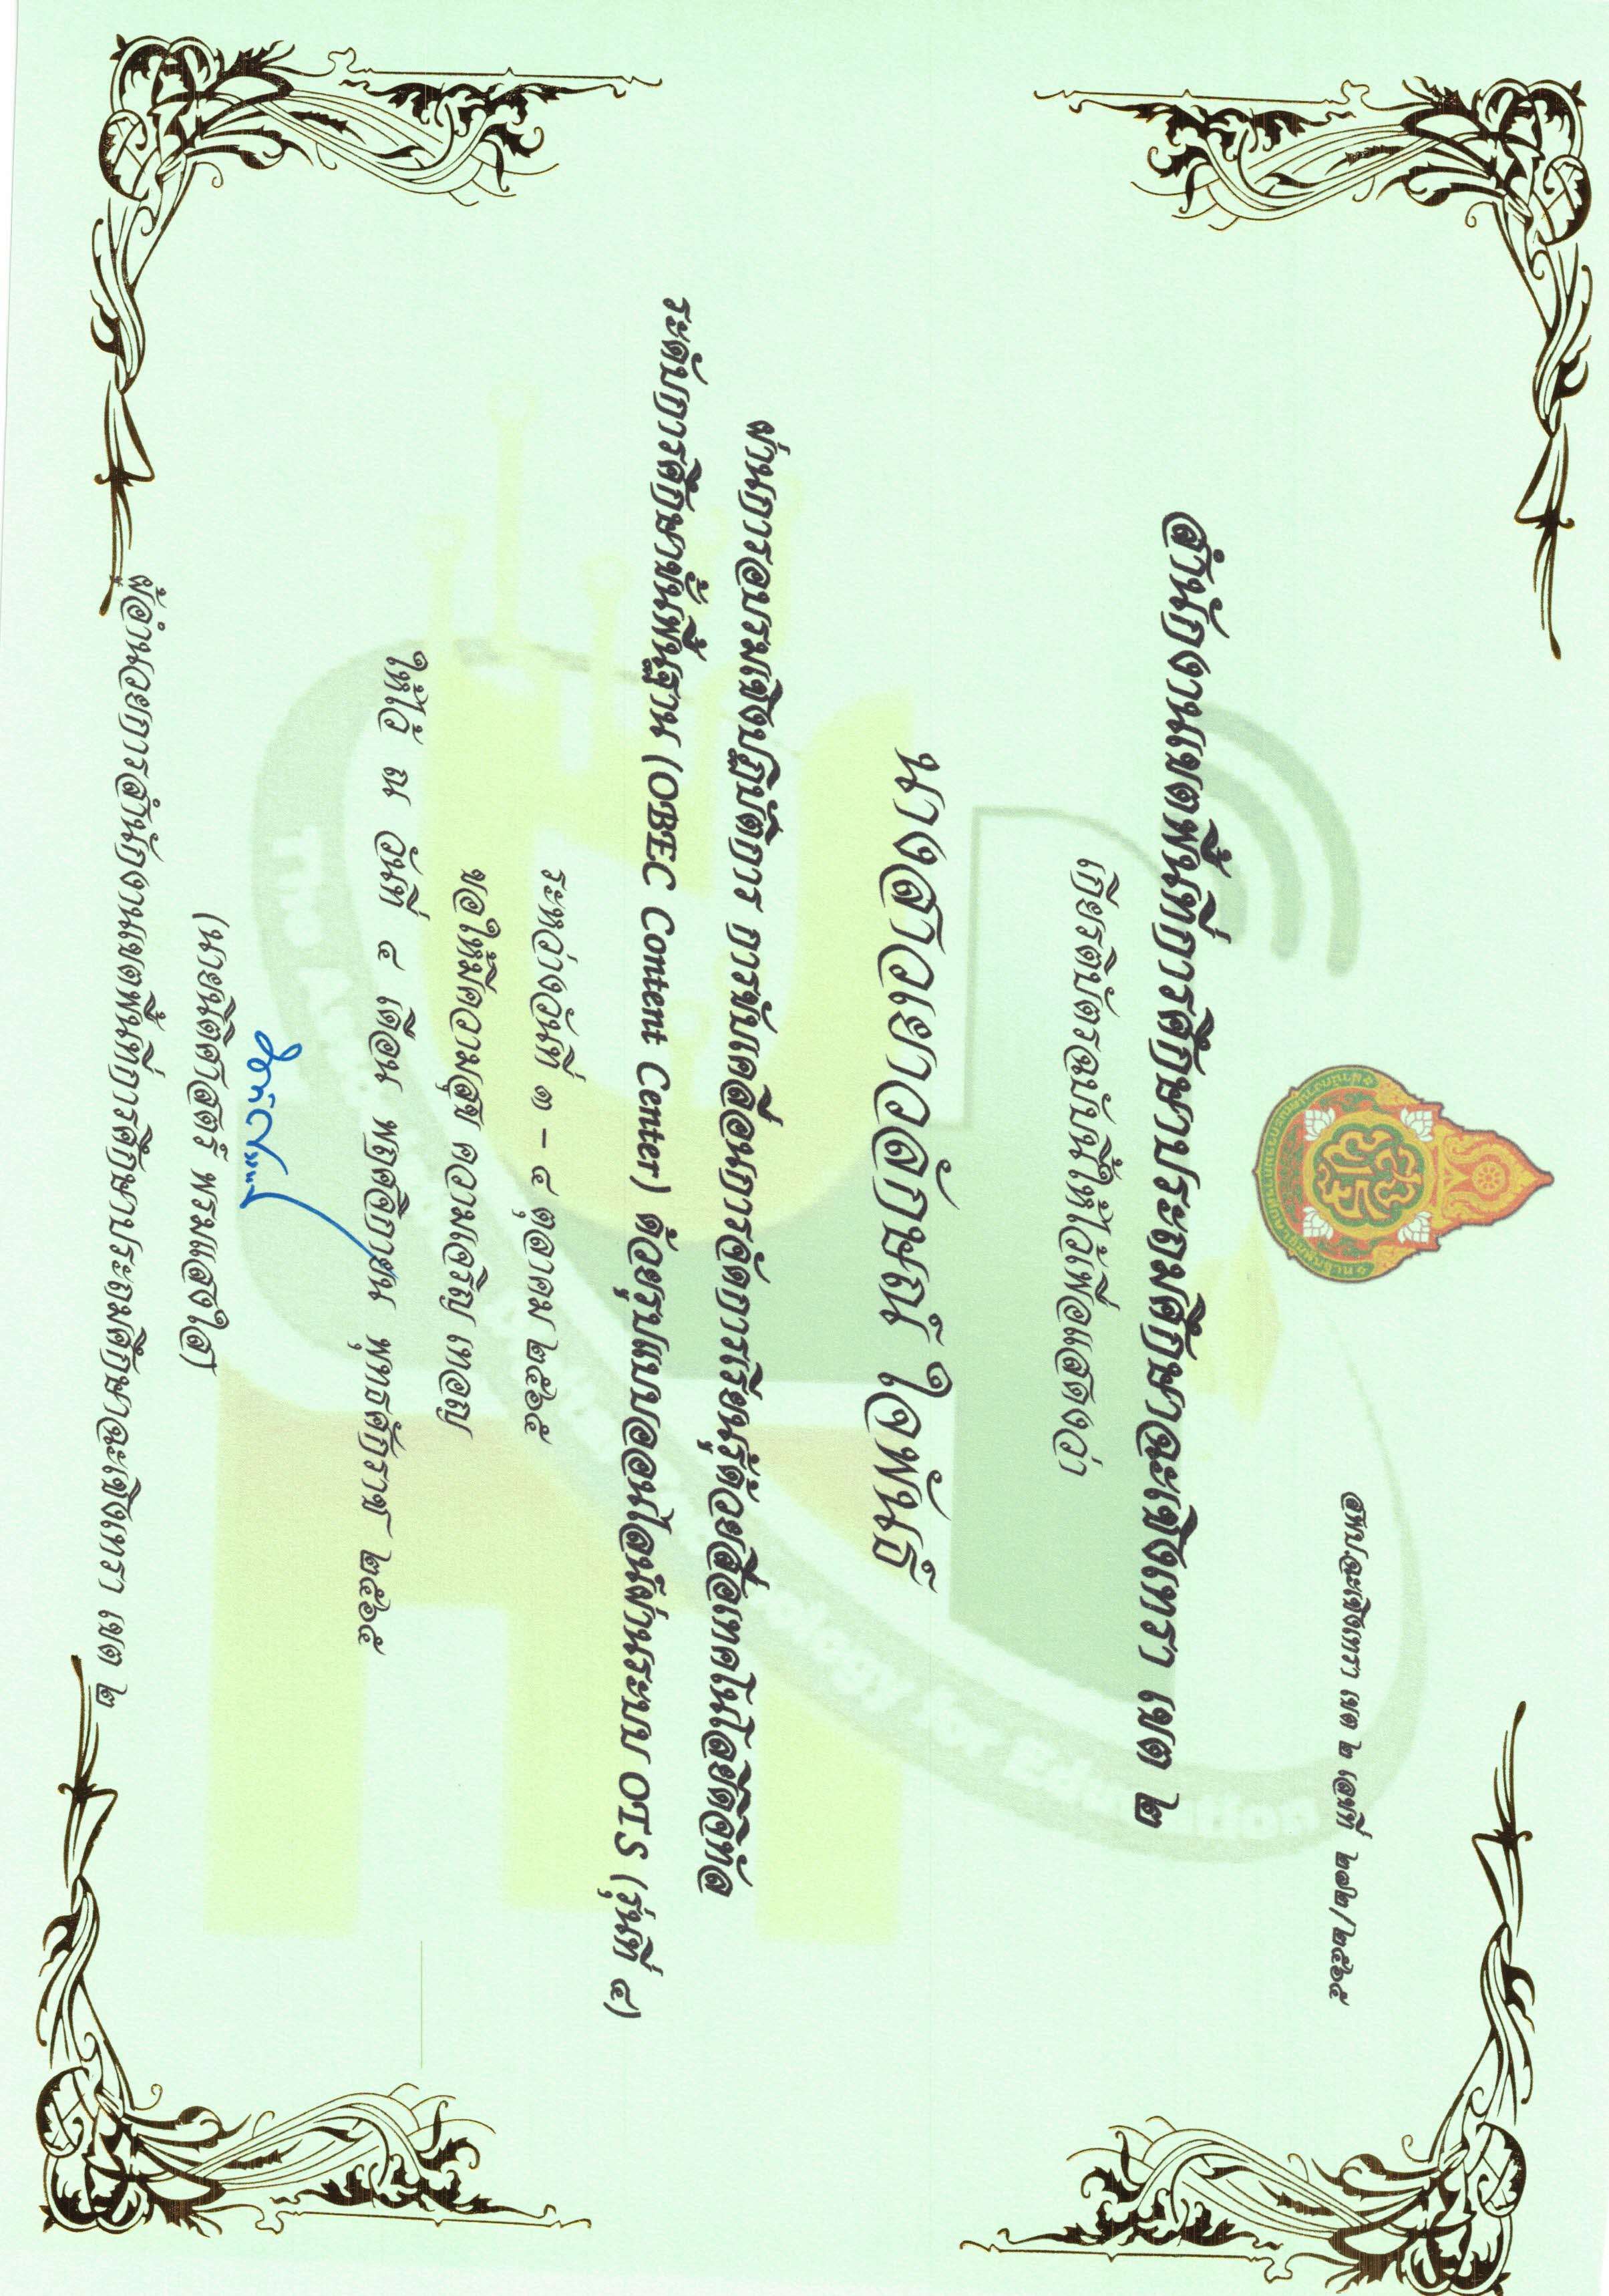 สพป.ฉะเชิงเทรา เขต ๒ เลขที่ ๒๑๒/๒๕๖๕
สำนักงานเขตพื้นที่การศึกษาประถมศึกษาฉะเชิงเทรา เขต ๒
เกียรติบัตรฉบับนี้ให้ไว้เพื่อแสดงว่า
นางสาวเยาวลักษณ์ ใจพันธ์
ผ่านการอบรมเชิงปฏิบัติการ การขับเคลื่อนการจัดการเรียนรู้ด้วยสื่อเทคโนโลยีดิจิทัล
ระดับการศึกษาขั้นพื้นฐาน (OBEC Content Center) ด้วยรูปแบบออนไลน์ผ่านระบบ OTS (รุ่นที่ ๔)
ระหว่างวันที่ ๓ - ๔ ตุลาคม ๒๕๖๕
ขอให้มีความสุข ความเจริญ เทอญ
ให้ไว้ ณ วันที่ ๔ เดือน พฤศจิกายน พุทธศักราช ๒๕๖๕
(นายนิติศาสตร์ พรมแสงใส)
ผู้อำนวยการสำนักงานเขตพื้นที่การศึกษาประถมศึกษาฉะเชิงเทรา เขต ๒
for Education